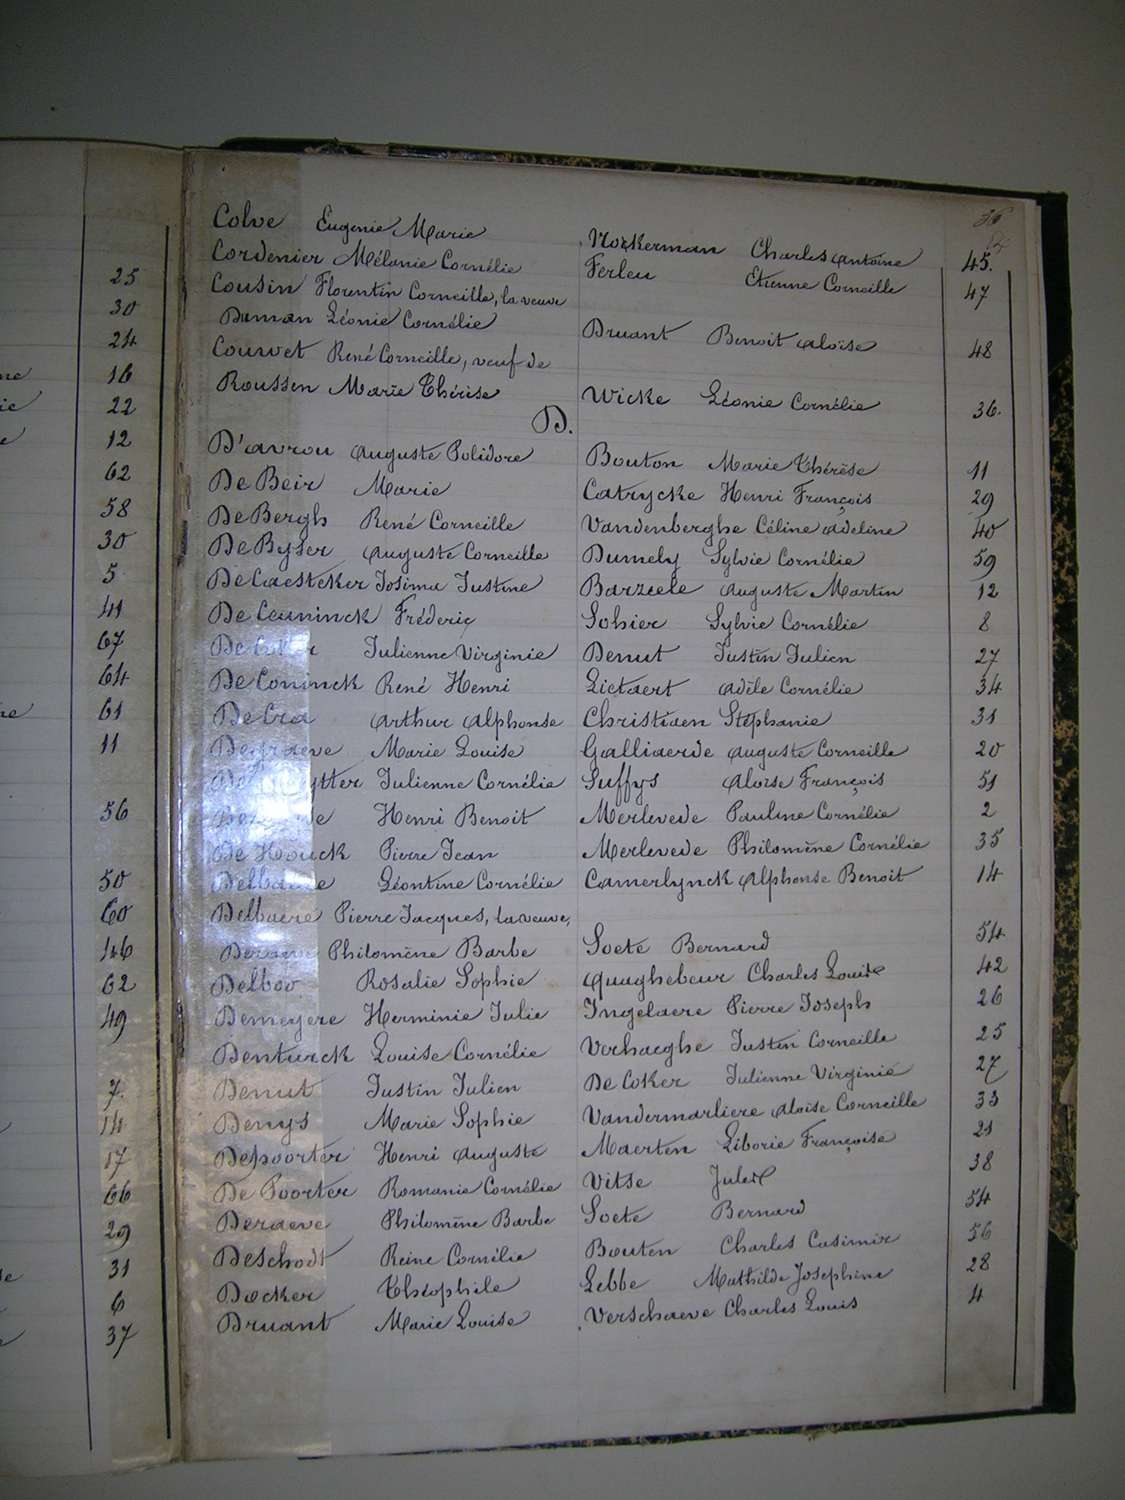 36
Colve Eugenie Marie Nozkerman Charles Antoine 45.
Cordenier Mélanie Cornélie Ferleu Etienne Corneille 47
Cousin Florentin Corneille, la veuve
Duman Léonie Cornélie Druant Benoit Aloïse 48
Couvet René Corneille, veuf de
Roussen Marie Thérèse Wicke Léonie Cornélie 36.
D.
D'avrou Auguste Polidore Bouton Marie Thérèse 11
De Beir Marie Catrycke Henri François 29
De Bergh René Corneille Vandenberghe Céline Adeline 40
De Byser Auguste Corneille Dumely Sylvie Cornélie 59
De Caesteker Josima Justine Barzeele Auguste Martin 12
De Ceuninck Fréderic Sohier Sylvie Cornélie 8
De Coker Julienne Virginie Denut Justin Julien 27
De Coninck René Henri Lietaert Adèle Cornélie 34
De Cra Arthur Alphonse Christiaen Stéphanie 31
Degraeve Marie Louise Galliaerde Auguste Corneille 20
ytter Julienne Cornélie Suffys Aloïse François 51
Henri Benoit Merlevede Pauline Cornélie 2
De Houck Pierre Jean Merlevede Philomène Cornélie 35
Delbaere Léontine Cornélie Camerlynck Alphonse Benoit 14
Delbaere Pierre Jacques, la veuve,
Deraeve Philomène Barbe Soete Bernard 54
Delboo Rosalie Sophie Quaghebeur Charles Louis 42
Demeyere Herminie Julie Ingelaere Pierre Joseph 26
Denturck Louise Cornélie Verhaeghe Justin Corneille 25
Denut Justin Julien De Coker Julienne Virginie 27
Denys Marie Sophie Vandermarliere Aloïse Corneille 33
Depoorter Henri Auguste Maerten Liborie Françoise 21
De Poorter Romanie Cornélie Vitse Jules 38
Deraeve Philomène Barbe Soete Bernard 54
Deschodt Reine Cornélie Bouten Charles Casimir 56
Docker Théophile Lebbe Mathilde Josephine 28
Druant Marie Louise Verschaeve Charles Louis 4
25
30
24
16
22
12
62
58
30
5
41
67
64
61
11
56
50
60
46
62
49
7.
14
17
66
29
31
6
37